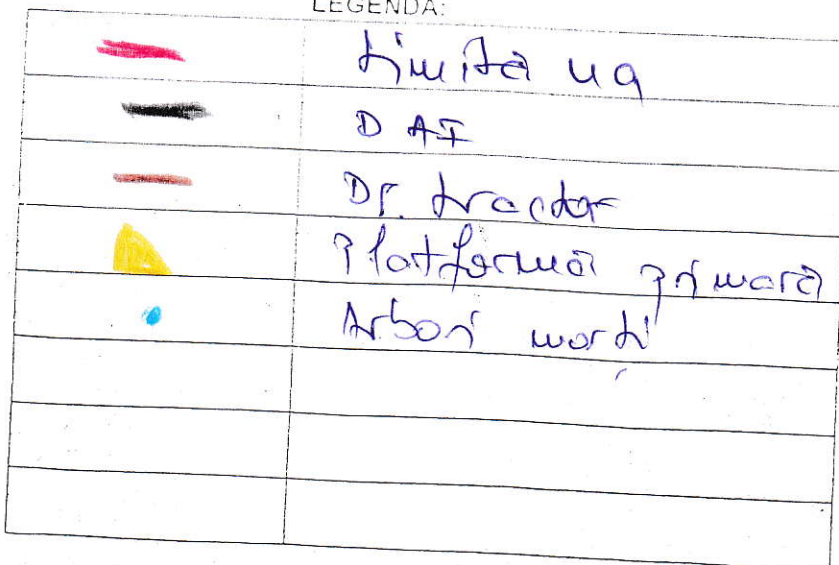 LEGENDA:
Limită ua
DAF
Dr. tractor
Platformă primară
Arbori morți